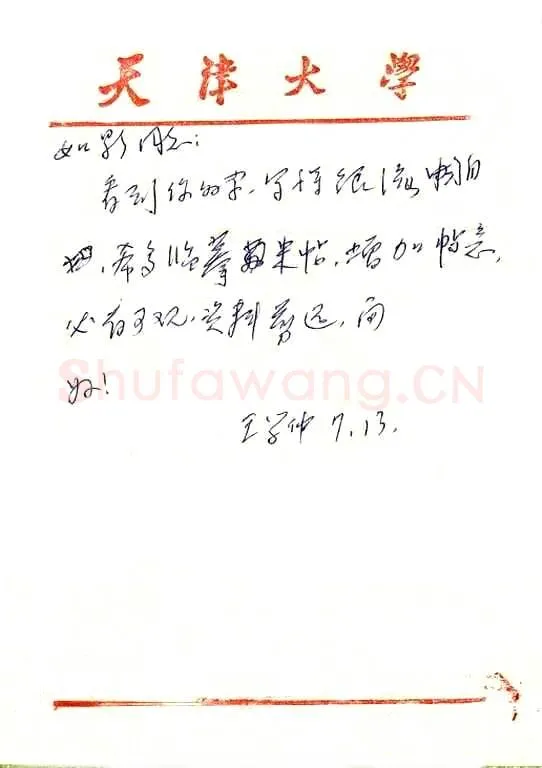 天津大学
如影同志：
看到你的字，写得很流畅自
如，希多临摹米帖，增加帖意，
必有可观，资料剪还，问
好！
王学仲 7.13.
Shufawang.CN